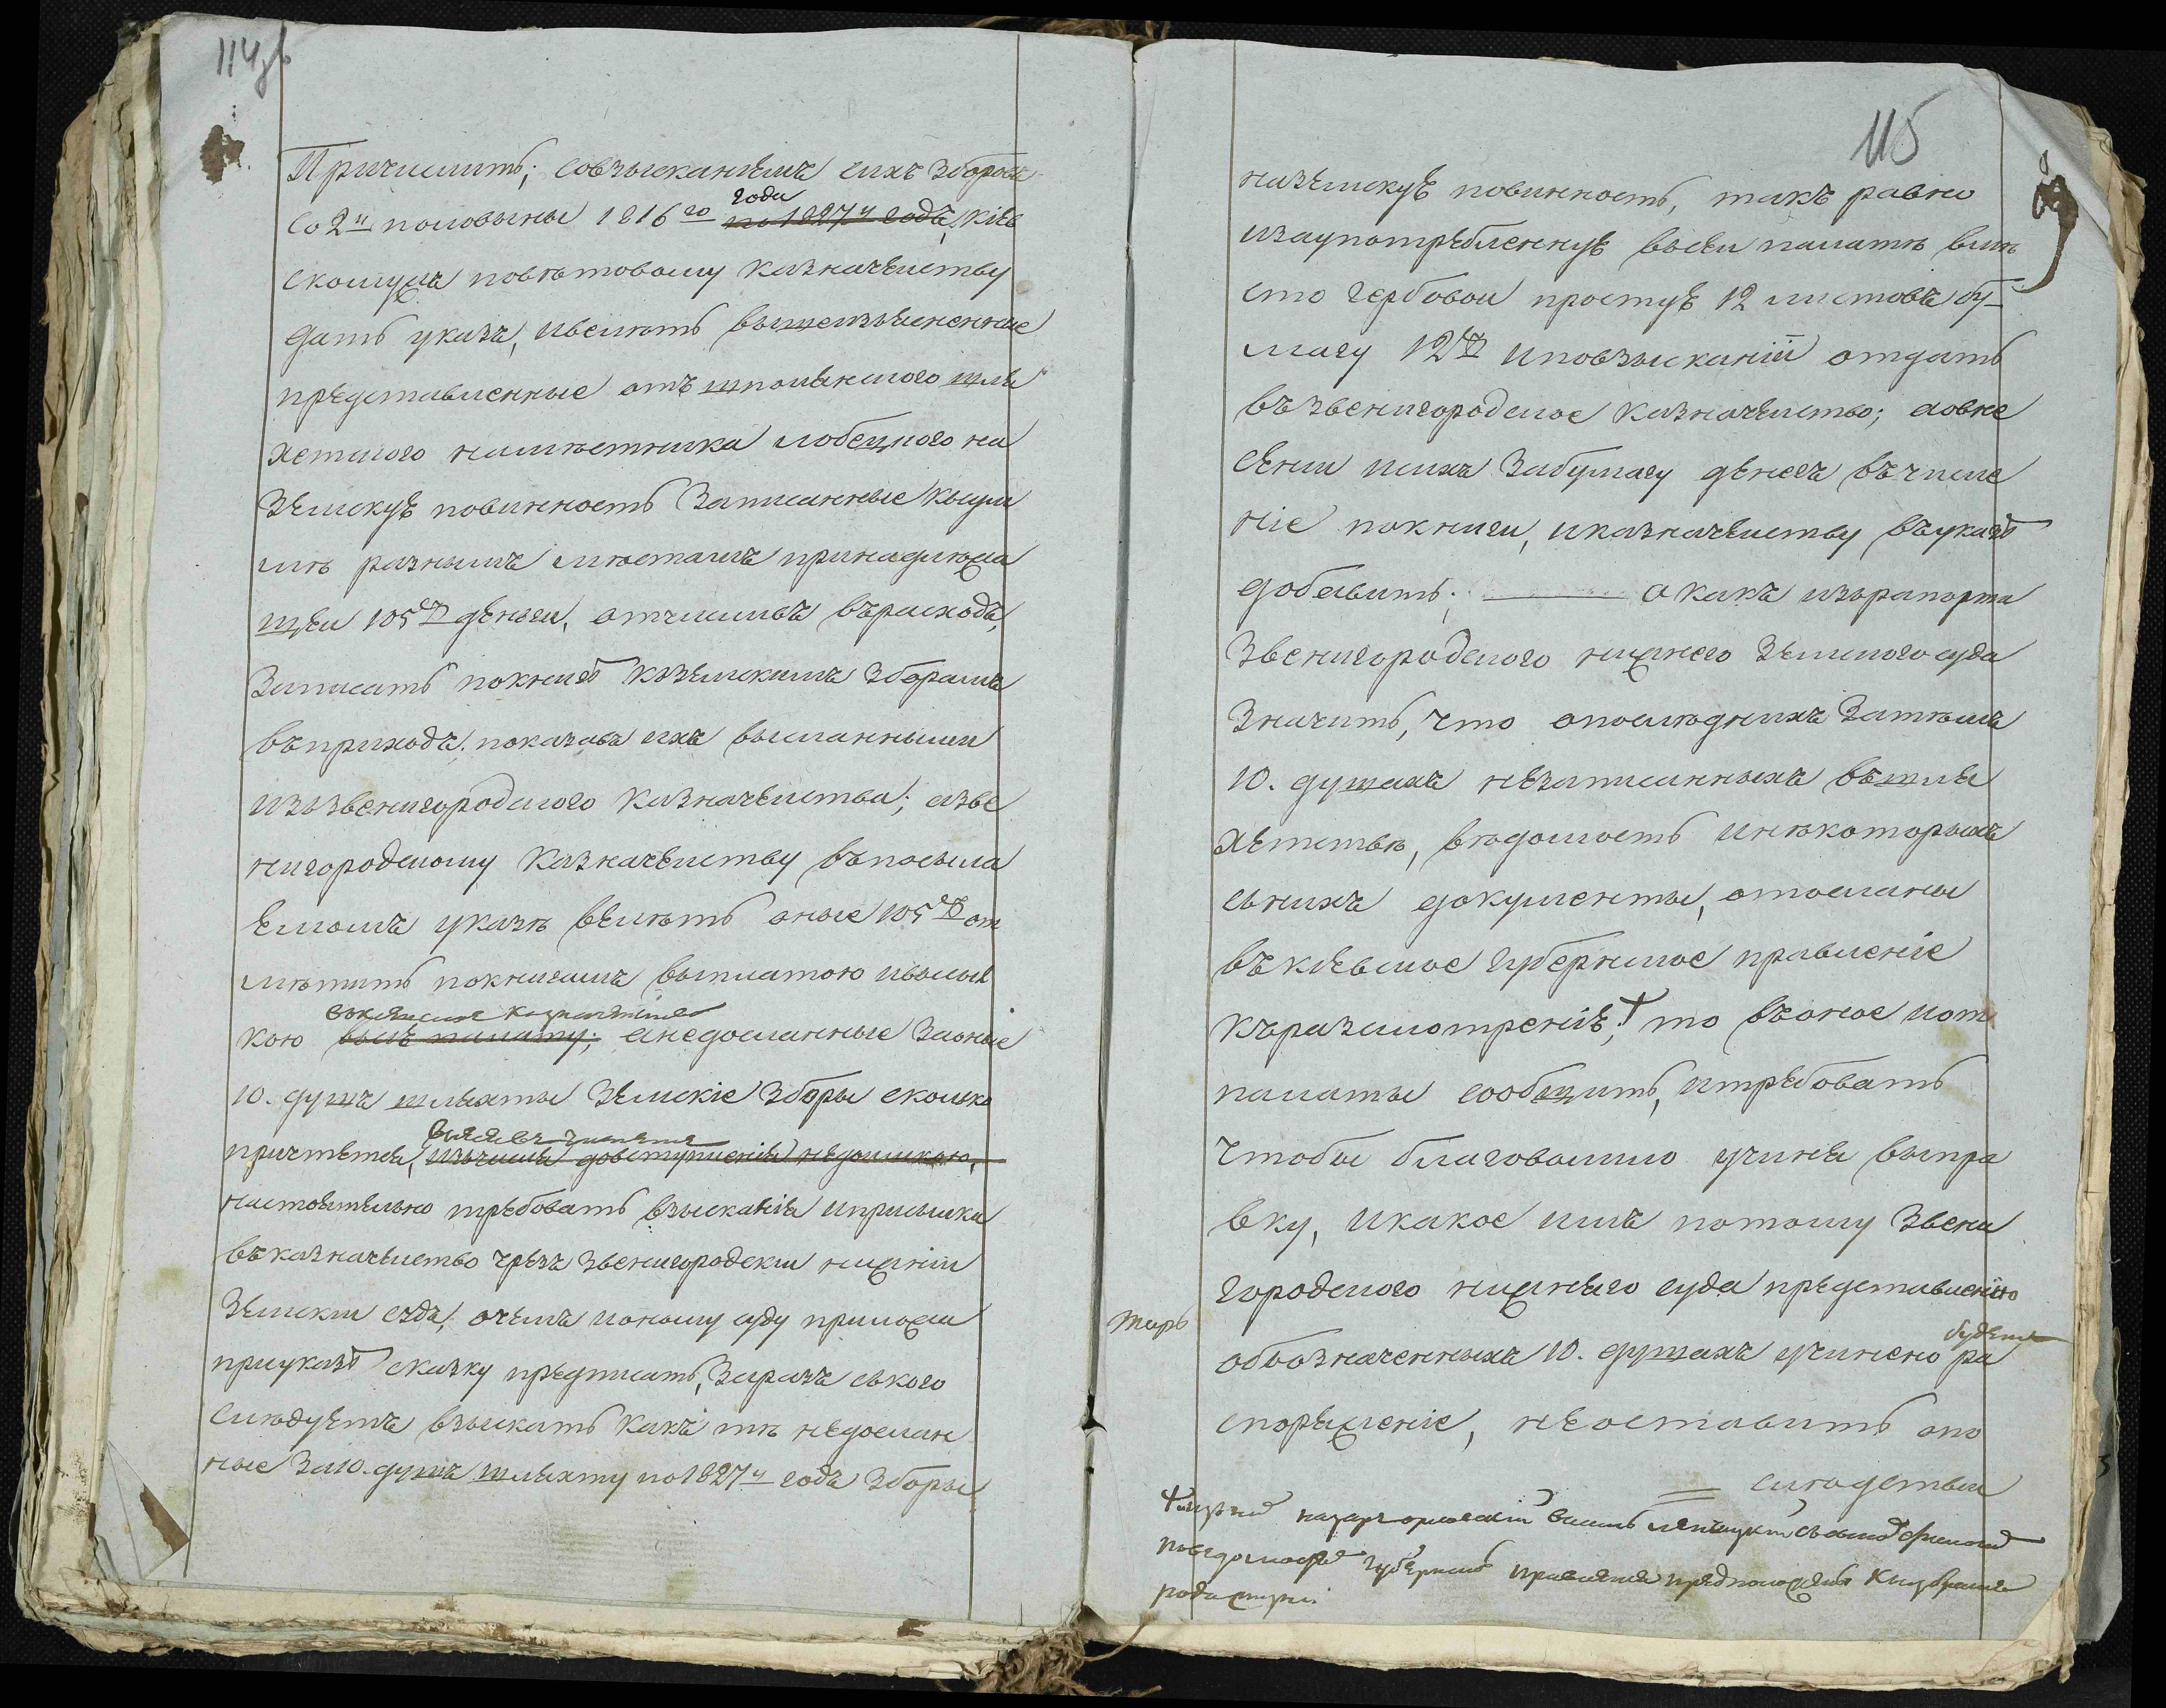 114 об
Причислить; совзысканиемъ сихъ зборовъ
со 2й половыны 1816го года по 1827й годъ, Кіев
скомууъ повѣтовому казначеиству
дать указъ, ивелѣть вышеизъясненные
представленные отъ шполянского шля
хетского намѣстника лобецкого на
земскую повинность Записанные ксум
мѣ разнымъ мѣстамъ принадлежа
щеи 105 р деньги, отчисливъ върасходъ,
Записать покнигѣ кземскимъ зборамъ
въприходъ, показавъ ихъ высланными
иззвенигородского казначеиства; азве
нигородскому казначеиству въпосыла
емомъ указѣ велѣть оные 105 р от
мѣтить покнигамъ выплатою ивысыл
въкіевское казначейство
кою высю палату; анедосланные Заоные
10. душъ шляхты Земскіе Зборы сколько
причтется, изъчисла довступленія недоимкою,
настоятельно требовать взысканія иприсылки
въказначеиство чрезъ звенигородски нижніи
Земски судъ; очемъ ионому суду приложа
приуказѣ сказку предписать, Заразъ ского
слюдуетъ взыскать какъ тѣ недослан
ные За10. душъ шляхту по1827й годъ Зборы
115
наземскую повинность, такъ равно
изаупотребленную высеи палатѣ вмѣ
сто гербовои простую 12 листовъ бу-
магу 12 р иповзысканіи отдать
възвенигородское казначеиство; аовне
сении ихъ Забумагу денегъ въчисле
ніе покниги, иказначеиству въуказѣ
добавить; — акакъ изърапорта
Звенигородского нижнего Земского суда
Значить, что опослюднихъ Затѣмъ
10. душахъ незаписанныхъ въшля
хетство, вюдомость инѣкоторыхъ
сьнихъ документы, отосланы
въкіевское губернское правленіе
къразсмотренію, † то въоное изъ
палаты сообщить, итребовать
чтобы благоволило учиня выпра
вку, икакое имъ потому Звени
городского нижнего суда представленію
ообозначенныхъ 10. душахъ учинено будетъ ра
споряженіе, неоставить опо
слюдствіи
†
губернскъ правленія предположенъ кизбранію
рода жизни